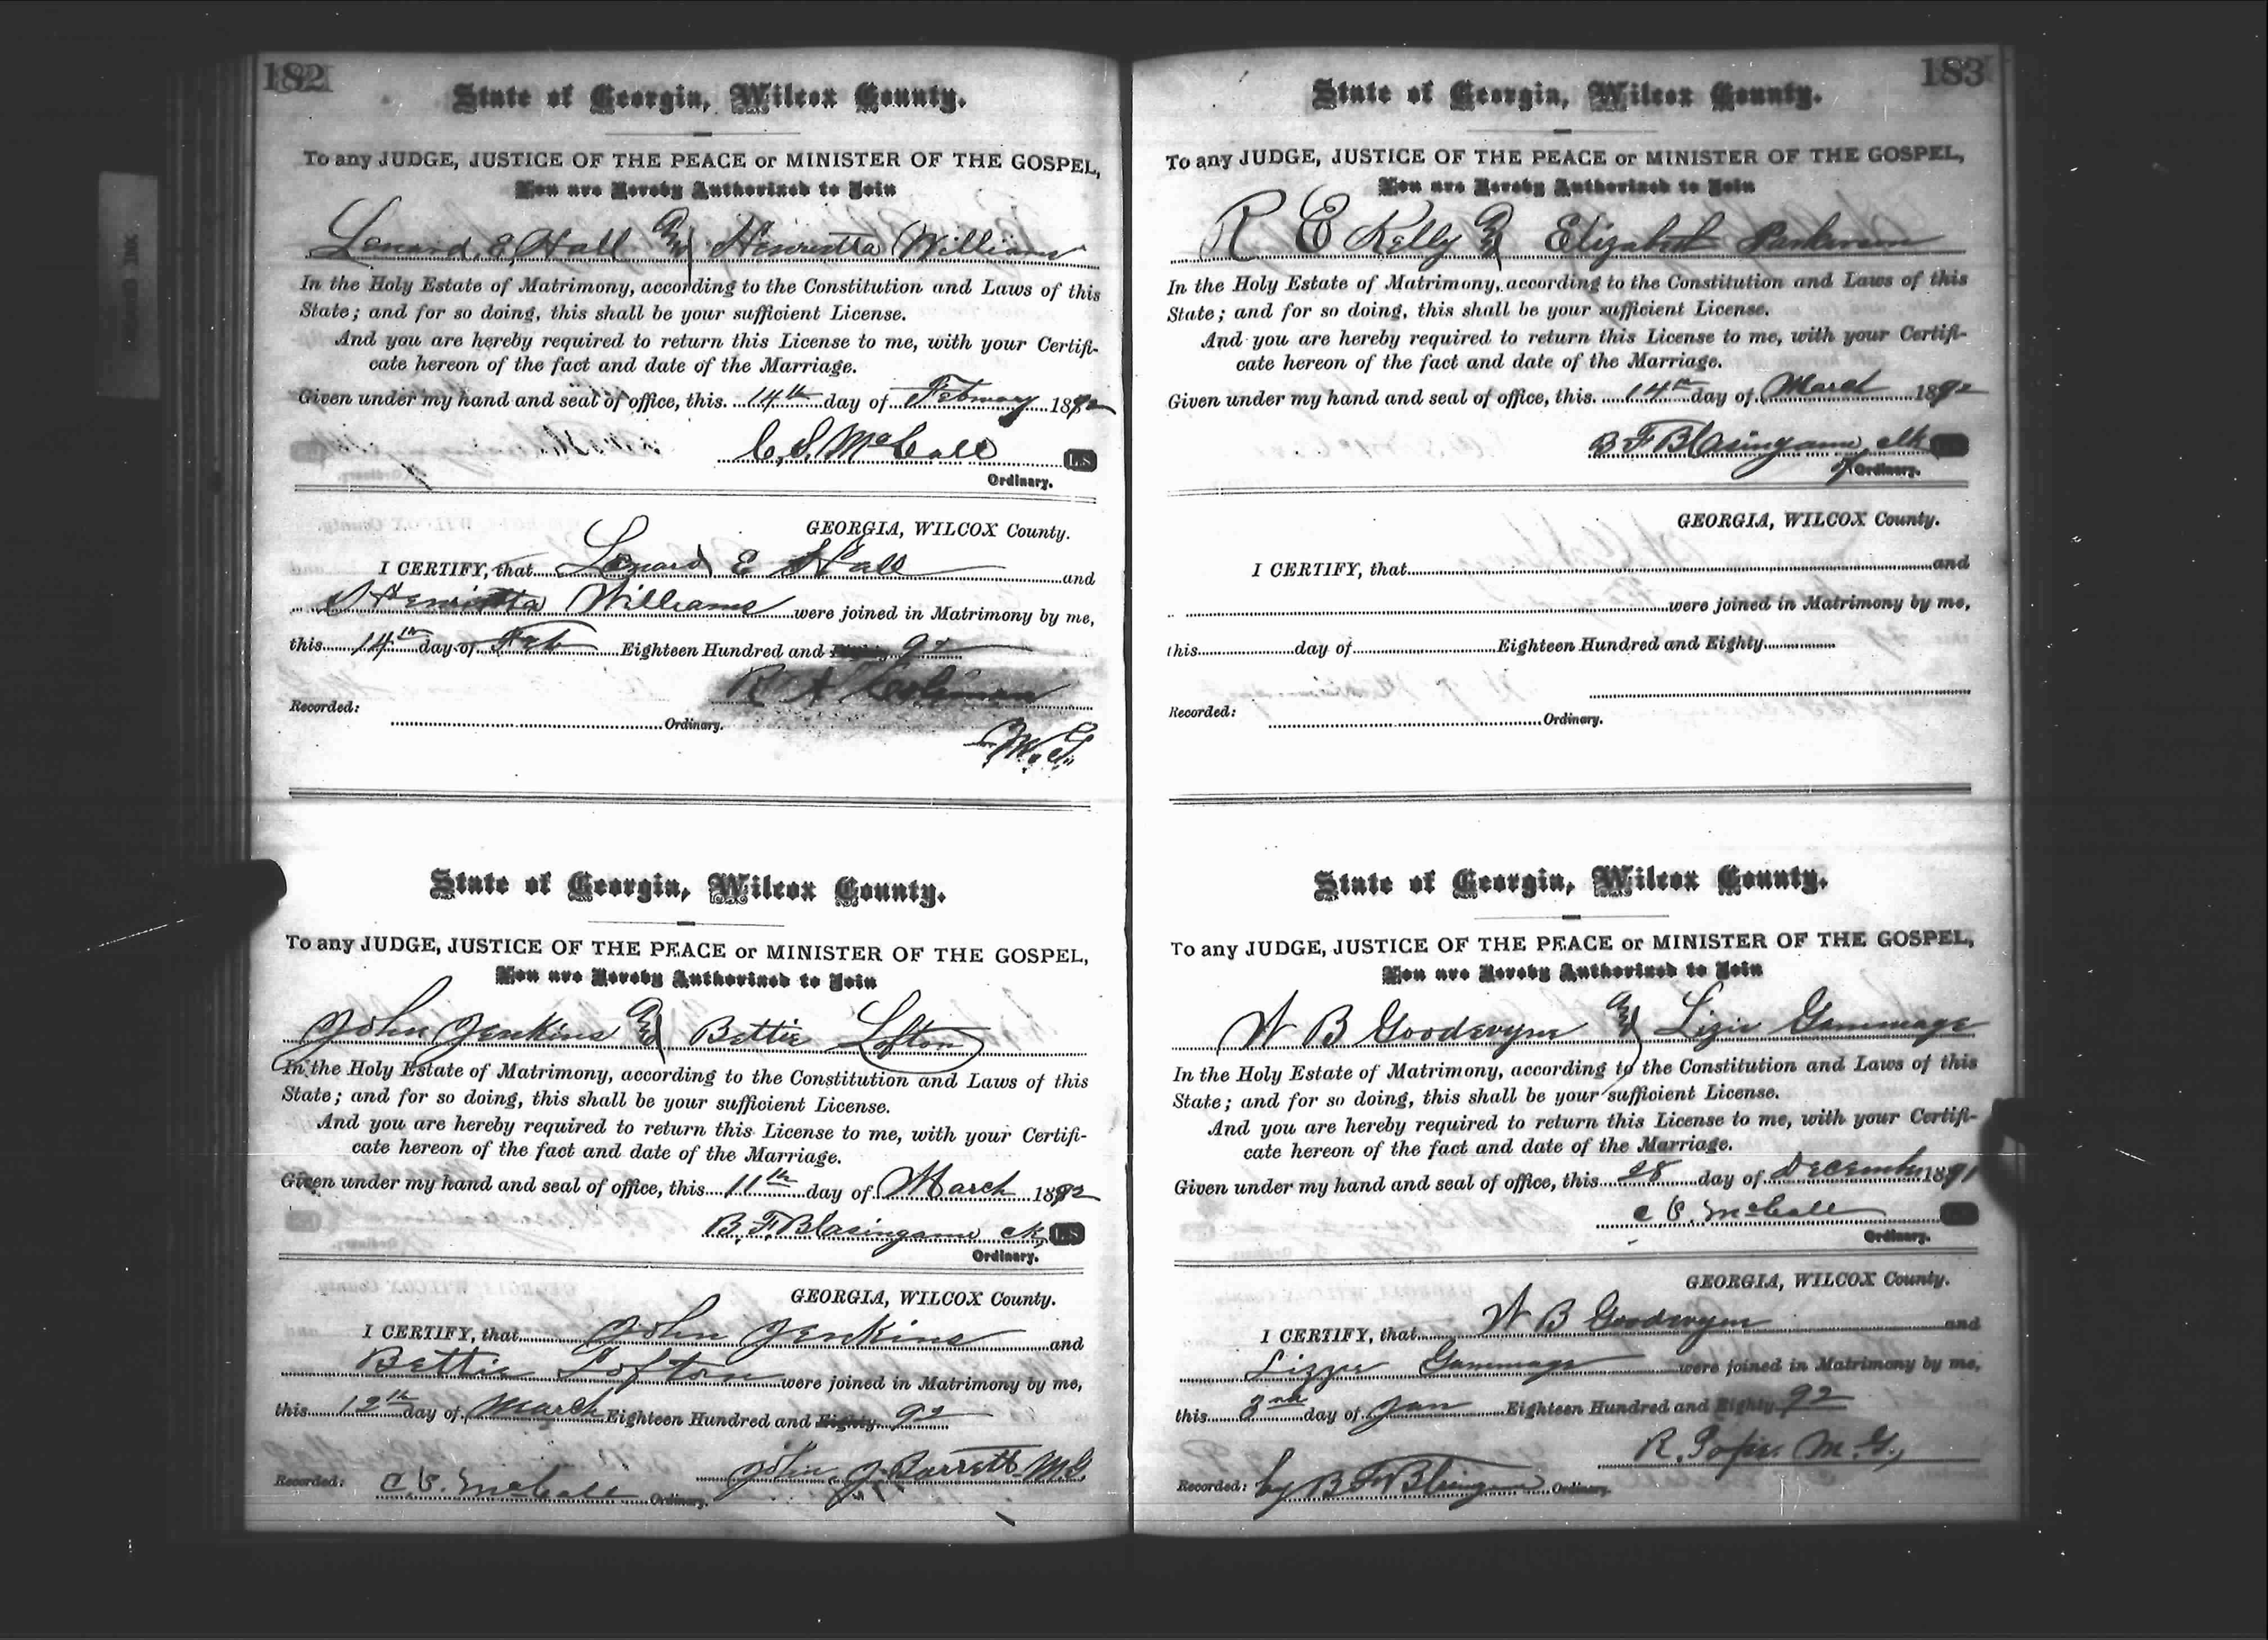 182
State of Georgia, Wilcox County.
To any JUDGE, JUSTICE OF THE PEACE or MINISTER OF THE GOSPEL,
You are Hereby Authorized to Join
Lenard E Hall and Henrietta Williams
In the Holy Estate of Matrimony, according to the Constitution and Laws of this
State; and for so doing, this shall be your sufficient License.
And you are hereby required to return this License to me, with your Certifi-
cate hereon of the fact and date of the Marriage.
Given under my hand and seal of office, this 14th day of February 1892
C. S. McCall L.S
Ordinary.
GEORGIA, WILCOX County.
I CERTIFY, that Lenard E Hall and
Henrietta Williams were joined in Matrimony by me,
this 14th day of Feb Eighteen Hundred and Eighty 92
R A
Recorded: Ordinary.
M.G.
State of Georgia, Wilcox County.
To any JUDGE, JUSTICE OF THE PEACE or MINISTER OF THE GOSPEL,
You are Hereby Authorized to Join
John Jenkins and Bettie Lofton
In the Holy Estate of Matrimony, according to the Constitution and Laws of this
State; and for so doing, this shall be your sufficient License.
And you are hereby required to return this License to me, with your Certifi-
cate hereon of the fact and date of the Marriage.
Given under my hand and seal of office, this 11th day of March 1892
B. F. Blasingame ck L.S
Ordinary.
GEORGIA, WILCOX County.
I CERTIFY, that John Jenkins and
Bettie Lofton were joined in Matrimony by me,
this 12th day of March Eighteen Hundred and Eighty 92
John J. Barrett M.G.
Recorded: C. S. McCall Ordinary.
183
State of Georgia, Wilcox County.
To any JUDGE, JUSTICE OF THE PEACE or MINISTER OF THE GOSPEL,
You are Hereby Authorized to Join
R E Kelly and Elizabeth Parkerson
In the Holy Estate of Matrimony, according to the Constitution and Laws of this
State; and for so doing, this shall be your sufficient License.
And you are hereby required to return this License to me, with your Certifi-
cate hereon of the fact and date of the Marriage.
Given under my hand and seal of office, this 14th day of March 1892
B F Blasingame clk
of Ordinary.
GEORGIA, WILCOX County.
I CERTIFY, that and
were joined in Matrimony by me,
this day of Eighteen Hundred and Eighty
Recorded: Ordinary.
State of Georgia, Wilcox County.
To any JUDGE, JUSTICE OF THE PEACE or MINISTER OF THE GOSPEL,
You are Hereby Authorized to Join
W B Goodwyn and Lizie Gammage
In the Holy Estate of Matrimony, according to the Constitution and Laws of this
State; and for so doing, this shall be your sufficient License.
And you are hereby required to return this License to me, with your Certifi-
cate hereon of the fact and date of the Marriage.
Given under my hand and seal of office, this 28 day of December 1891
C S. McCall
Ordinary.
GEORGIA, WILCOX County.
I CERTIFY, that W B Goodwyn and
Lizzie Gammage were joined in Matrimony by me,
this 3rd day of Jan Eighteen Hundred and Eighty 92
R. M.G.,
Recorded: by B F Blasingame Ordinary.